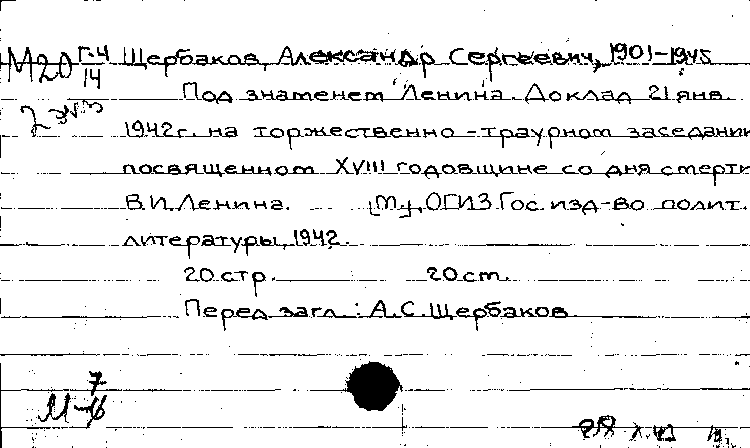 М20 Г-4 Щербаков, Александр Сергеевич, 1901-1945
14
Под знаменем Ленина. Доклад 21 янв.
2 экз
1942г. на торжественно-траурном заседании
посвященном XVIII годовщине со дня смерти
В.И.Ленина. [М], ОГИЗ Гос. изд-во полит.
литературы, 1942.
20 стр. 20 ст.
Перед загл.: А.С.Щербаков
7